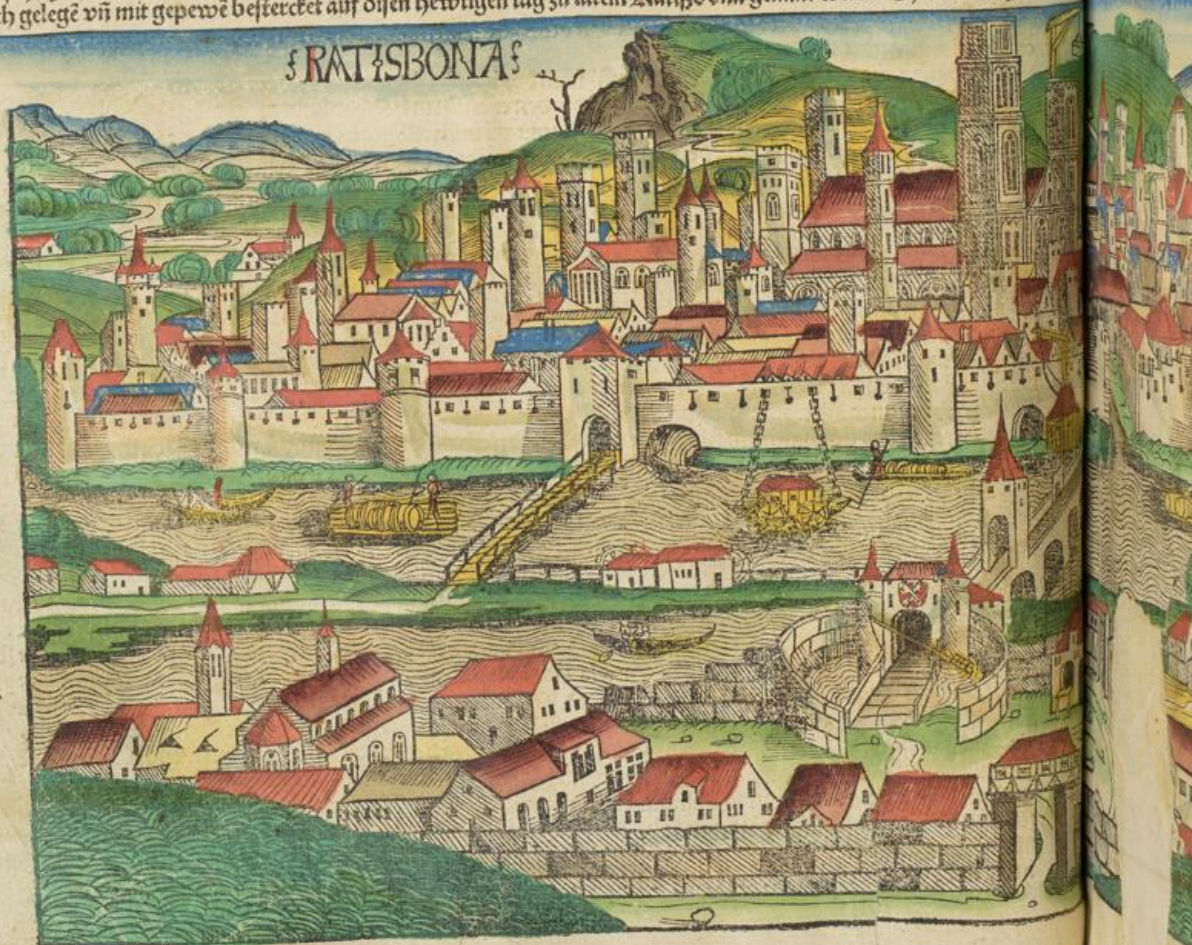 gelegẽ vñ mit gepewẽ bestercket auf disen hewtigen tag zu
RATISBONA